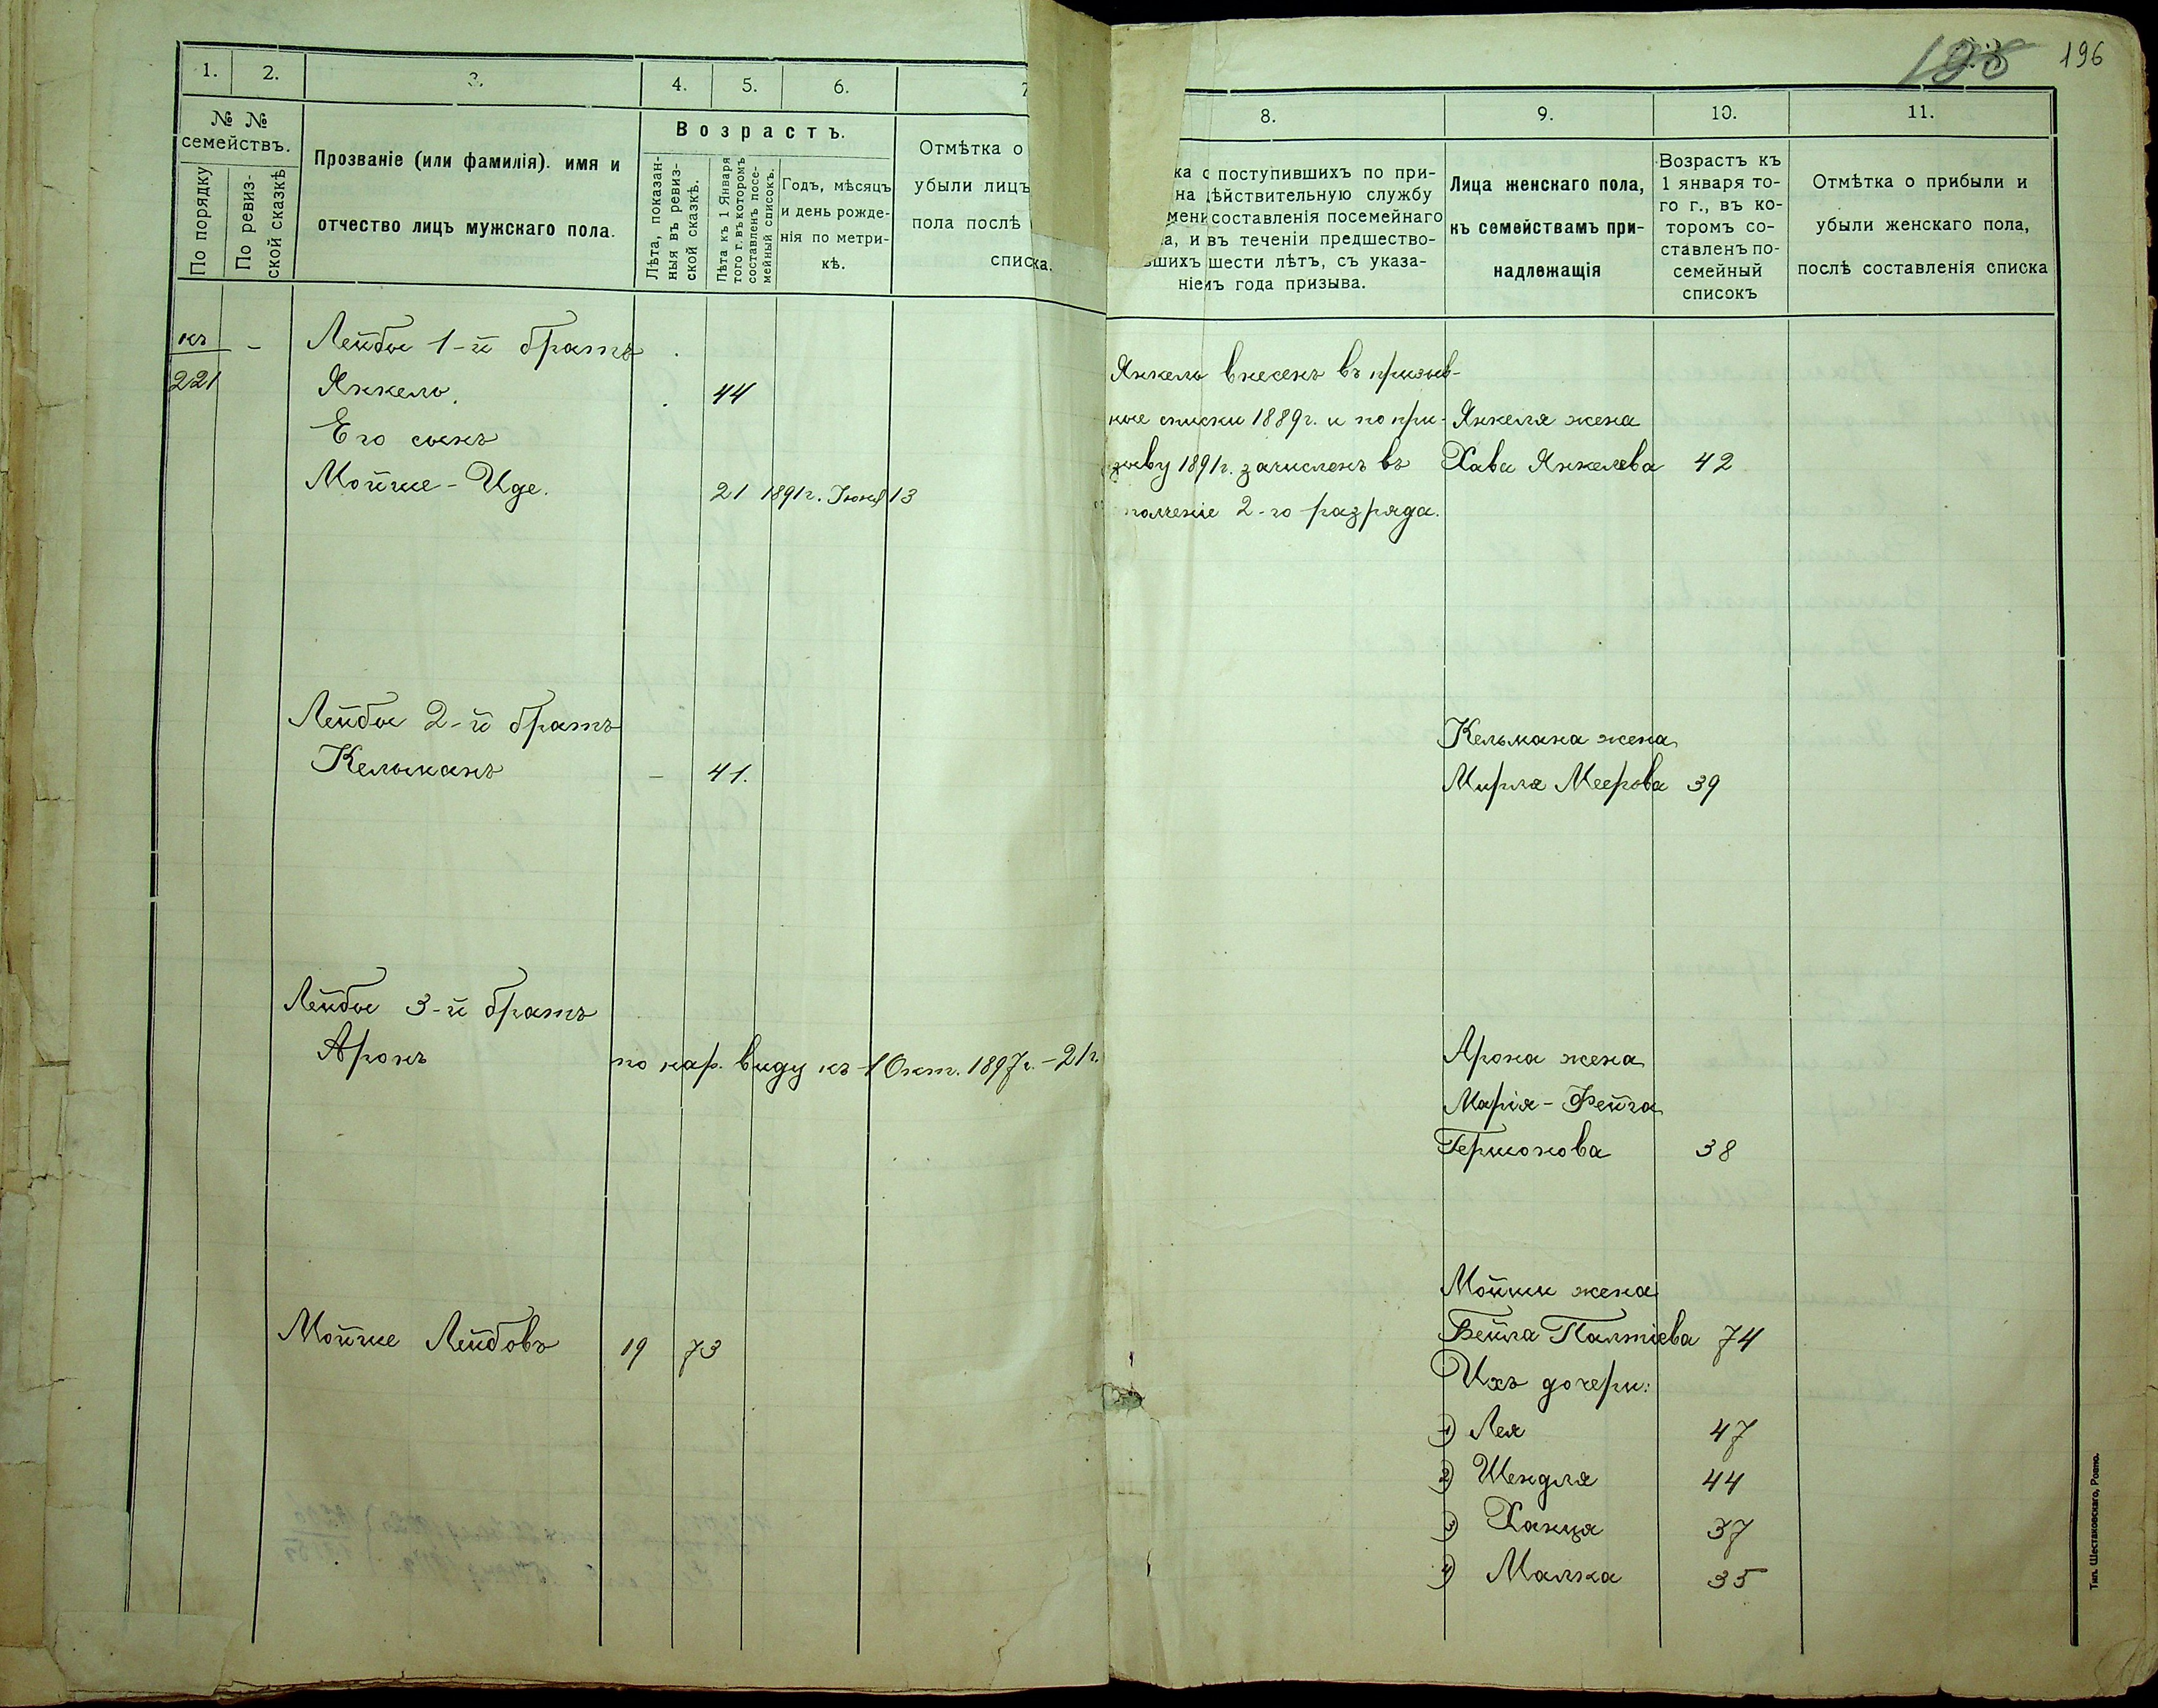 1. 2. 3. 4. 5. 6. 7
№ №
семействъ.
По порядку
По ревиз-
ской сказкѣ
Прозваніе (или фамилія). имя и
отчество лицъ мужскаго пола.
Возрастъ.
Лѣта, показан-
ныя въ ревиз-
ской сказкѣ.
Лѣта къ 1 Января
того г. въ которомъ
составленъ посе-
мейный списокъ.
Годъ, мѣсяцъ
и день рожде-
нія по метри-
кѣ.
Отмѣтка о
убыли лицъ
пола послѣ
списка.
къ – Лейбы 1-й братъ
221 Янкель. 44
Его сынъ
Мойше-Иде. 21 1891г. Іюня 13
Лейбы 2-й братъ
Кельманъ – 41.
Лейбы 3-й братъ
Аронъ по нар. виду къ 1 Окт. 1897г. – 21г.
Мойше Лейбовъ 19 73
196
8. 9. 10. 11.
ка о поступившихъ по при-
на дѣйствительную службу
мени составленія посемейнаго
а, и въ теченіи предшество-
вшихъ шести лѣтъ, съ указа-
ніемъ года призыва.
Лица женскаго пола,
къ семействамъ при-
надлежащія
Возрастъ къ
1 января то-
го г., въ ко-
торомъ со-
ставленъ по-
семейный
списокъ
Отмѣтка о прибыли и
убыли женскаго пола,
послѣ составленія списка
Янкель внесенъ въ призыв-
ные списки 1889г. и по при- Янкеля жена
зыву 1891г. зачисленъ въ Хава Янкелева 42
полченіе 2-го разряда.
Кельмана жена
Мирля Меерова 39
Арона жена
Марія-Фейга
Гершонова 38
Мойши жена
Бейла Палтіева 74
Ихъ дочери:
1) Лея 47
2) Шендля 44
3) Ханця 37
4) Малка 35
Тип. Шестаковскаго, Ровно.